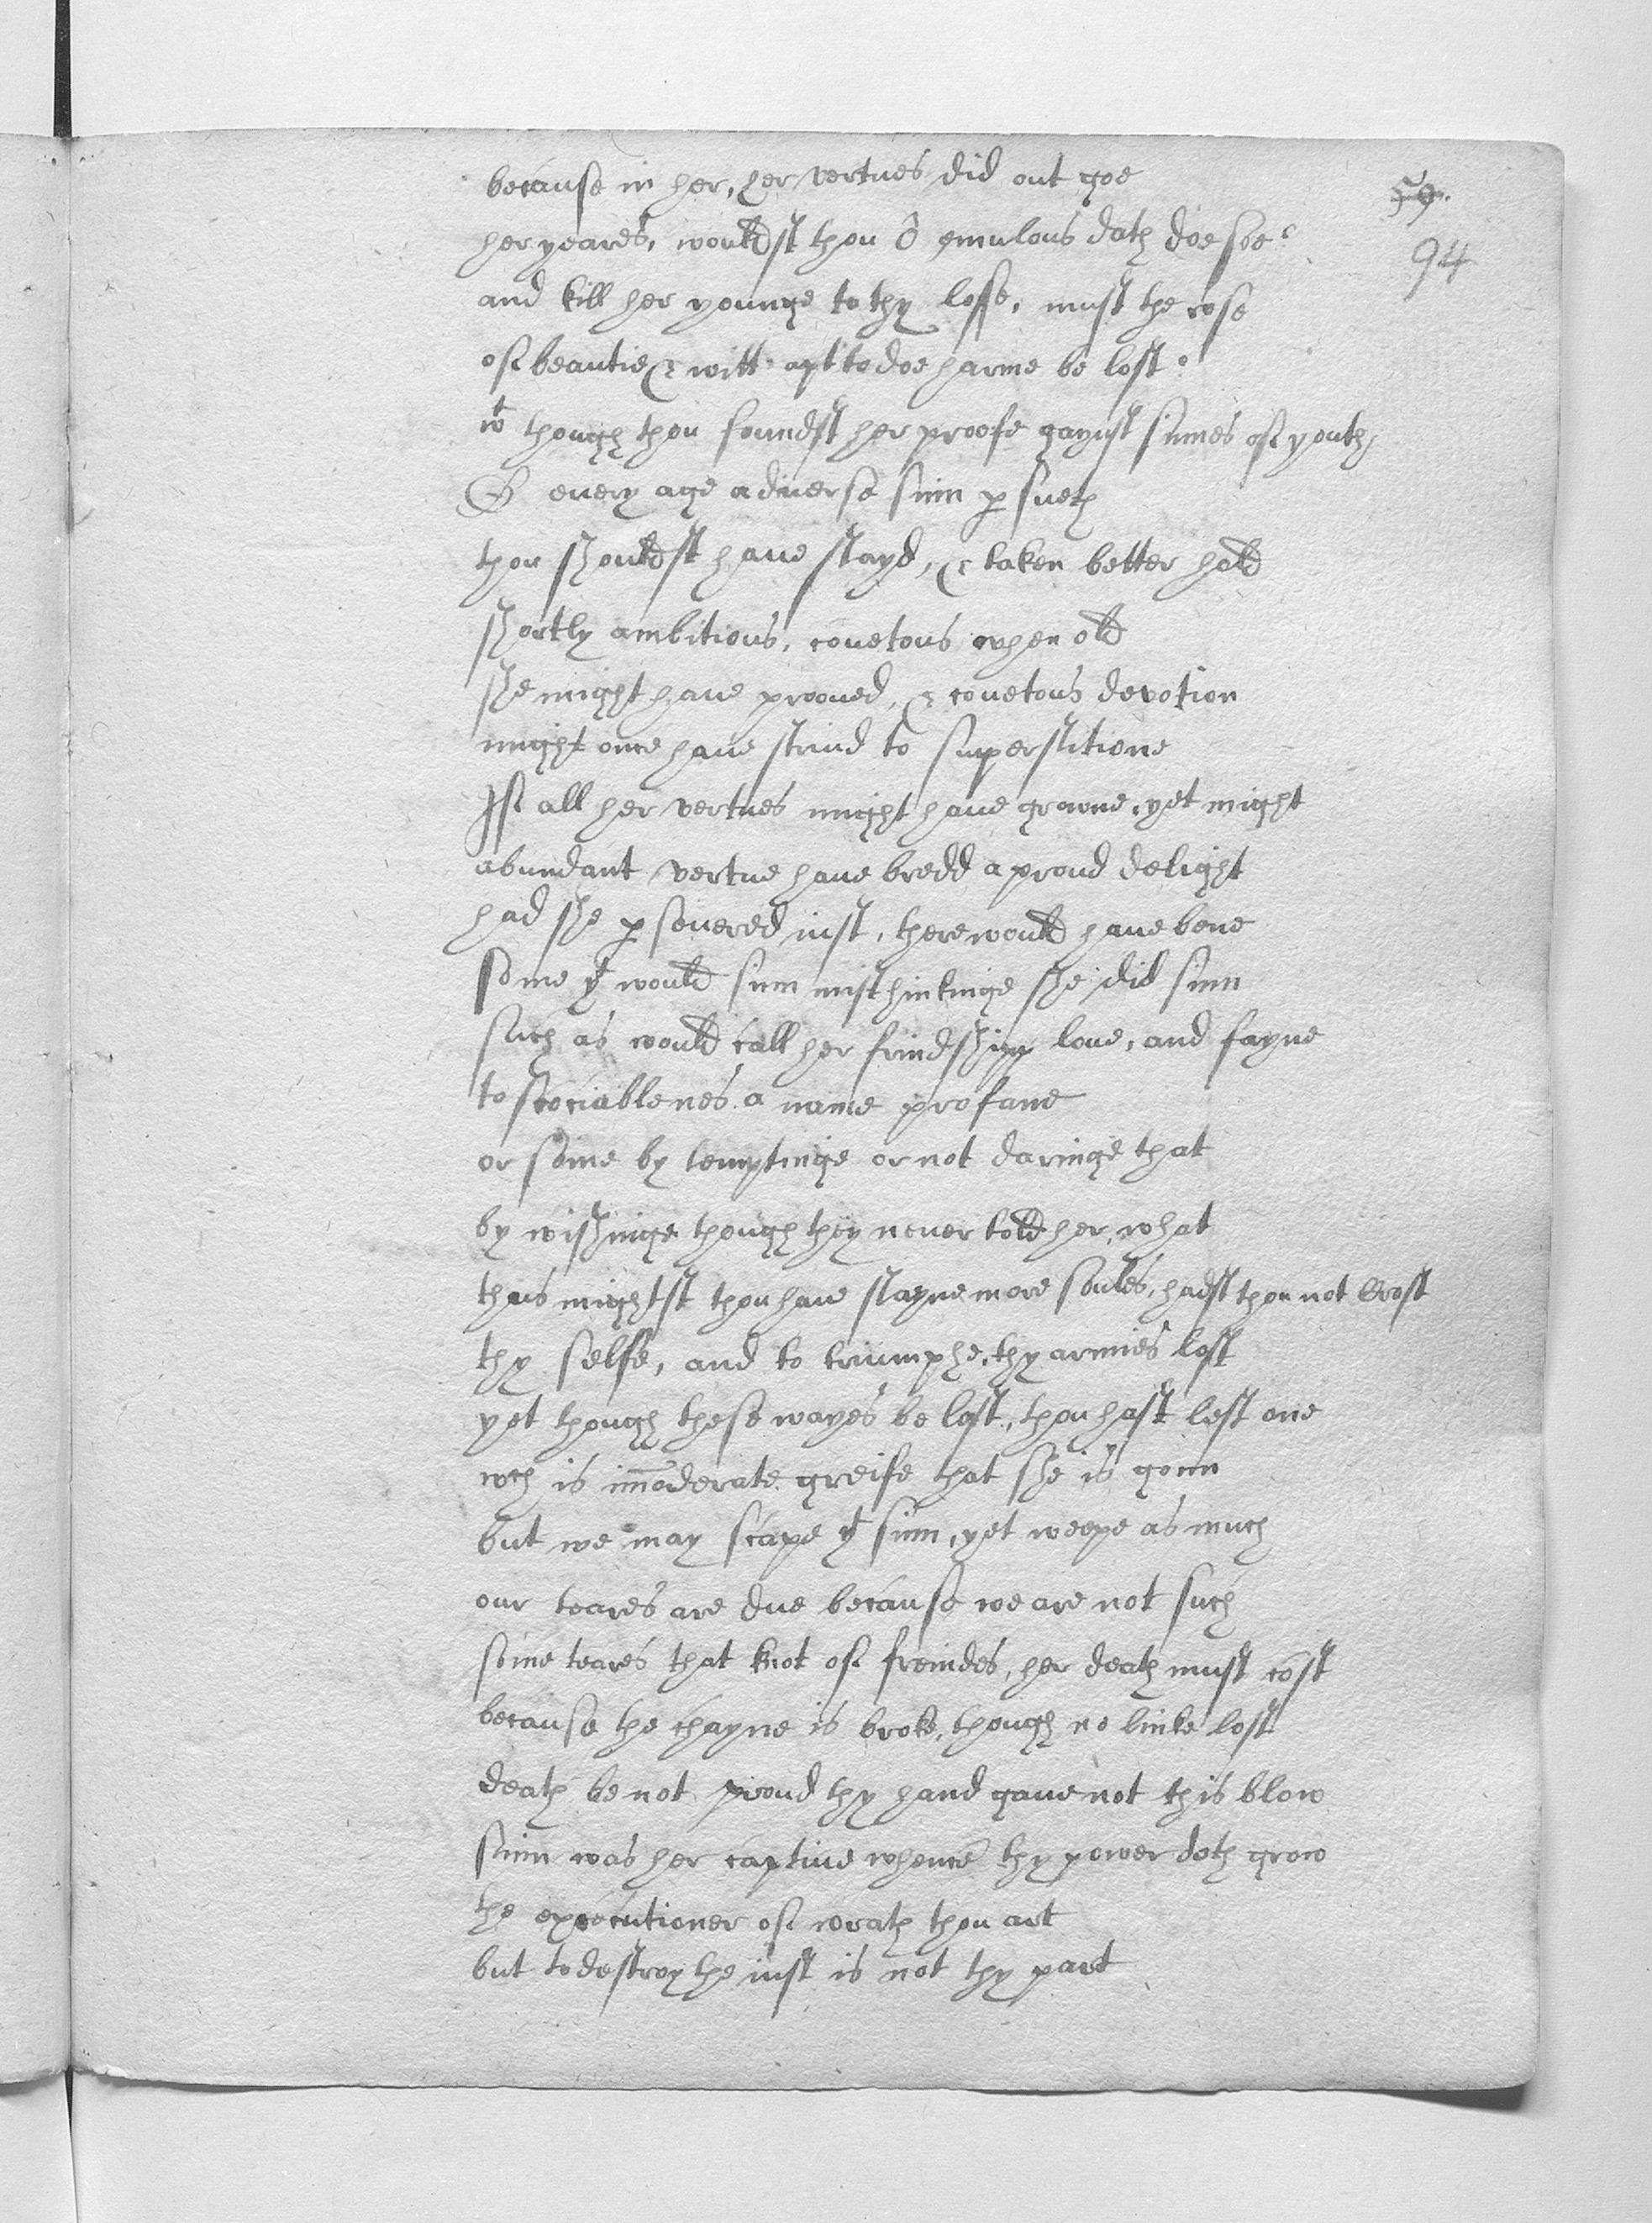 because in her, her vertues did out goe
59.
her yeares, wouldst thou ô emulous dath doe soe?
94
and kill her younge to thy losse, must the cose
of beautie & witt apt to doe harme be lost?
wt though thou foundst her proofe gaynst sinnes of youth,
O every age a diverse sinn p sueth
thou shouldst haue stayd, & taken better hold
shortly ambitious, couetous when old
she might haue prooued, & couetous devotion
might once haue strind to superstitione
If all her vertues might haue growne, yet might
abundant vertue haue bredd a proud delight
had she p seuered iust, there would haue bene
some yt would sinn misthinkinge she did sinn
such as would call her frindshipp loue, and fayne
to scociablenes a name profane
or sinne by temptinge or not daringe that
by wishinge though they neuer told her, what
thus mightst thou haue slayne more soules, hadst thou not Crost
thy selfe, and to triumphe, thy armies lost
yet though these wayes be lost, thou hast left one
wch is im̅oderate greife that she is gonn
but we may scape yt sinn, yet weepe as much
our teares are due because we are not such
some teares that knot of freindes, her death must cost
because the chayne is broke, though no linke lost
death be not proud thy hand gaue not this blow
sinn was her captiue whence thy power doth grow
the executioner of wrath thou art
but to destroy the iust is not thy part